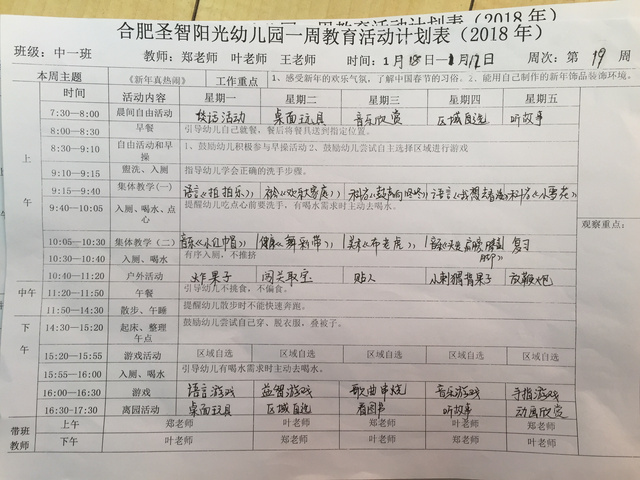 合肥圣智阳光幼儿园一周教育活动计划表（2018 年）
班级：中一班 教师：郑老师 叶老师 王老师 时间：1月 日—1月12日 周次：第 19 周
本周主题 《新年真热闹》 工作重点 1、感受新年的欢乐气氛，了解中国春节的习俗。2、能用自己制作的新年饰品装饰环境。
时间 活动内容 星期一 星期二 星期三 星期四 星期五
上午
7:30—8:00 晨间自由活动 活动 桌面玩具 音乐欣赏 区域自选 听故事
8:00—8:30 早餐 引导幼儿自己就餐，餐后将餐具送到指定位置。
8:30—9:10 自由活动和早操 1、鼓励幼儿积极参与早操活动 2、鼓励幼儿尝试自主选择区域进行游戏
9:10—9:15 盥洗、入厕 指导幼儿学会正确的洗手步骤。
9:15—9:40 集体教学（一） 语言《拍拍乐》 《欢乐家庭》 科学 语言 《小雪花》
9:40—10:05 入厕、喝水、点心 提醒幼儿吃点心前要洗手，有喝水需求时主动去喝水。
观察重点：
10:05—10:30 集体教学（二） 音乐《小红帽》 健康《舞彩带》 美术《布老虎》 音乐 复习
10:30—10:40 入厕、喝水 有序入厕，不推挤
10:40—11:20 户外活动 炸果子 闯关取宝 贴人 小刺猬背果子 放鞭炮
中午
11:20—11:50 午餐 引导幼儿不挑食，不偏食。
11:50—14:30 散步、午睡 提醒幼儿散步时不能快速奔跑。
下午
14:30—15:20 起床、整理午点 鼓励幼儿尝试自己穿、脱衣服，叠被子。
15:20—15:55 游戏活动 区域自选 区域自选 区域自选 区域自选 区域自选
15:55—16:00 入厕、喝水 引导幼儿有喝水需求时主动去喝水。
16:00—16:30 游戏 语言游戏 益智游戏 歌曲串烧 音乐游戏 手指游戏
16:30-17:30 离园活动 桌面玩具 区域自选 看图书 听故事 动画欣赏
带班教师
上午 郑老师 叶老师 郑老师 叶老师 郑老师
下午 叶老师 郑老师 叶老师 郑老师 叶老师